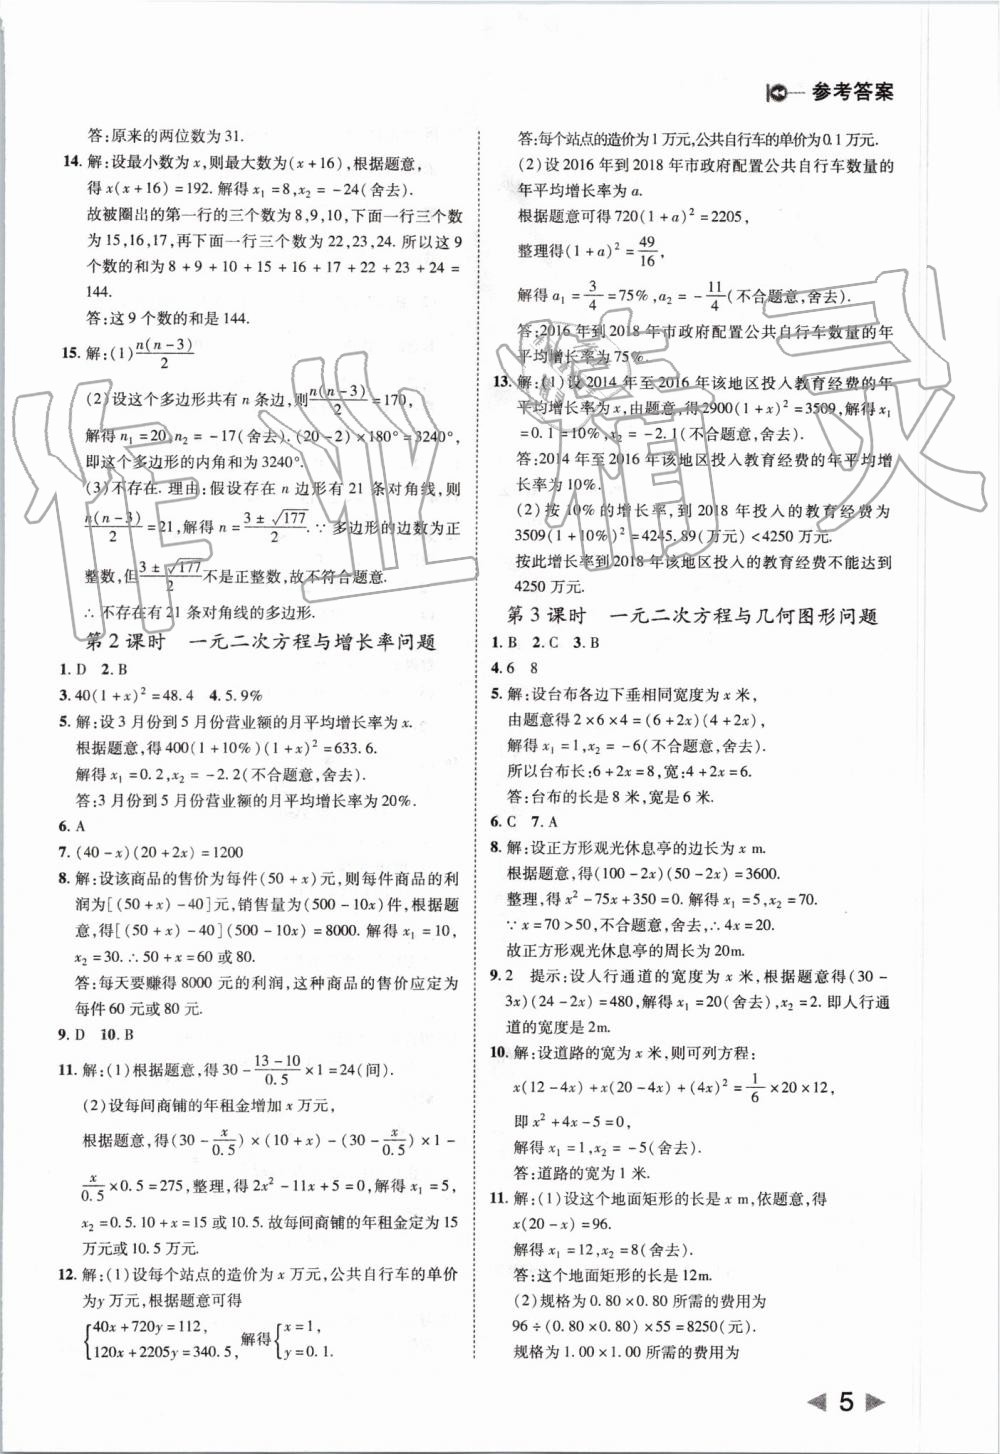 参考答案
答:原来的两位数为31.
14. 解:设最小数为x,则最大数为(x+16),根据题意,
得x(x+16)=192. 解得x₁=8,x₂=-24(舍去).
故被圈出的第一行的三个数为8,9,10,下面一行三个数
为15,16,17,再下面一行三个数为22,23,24. 所以这9
个数的和为8+9+10+15+16+17+22+23+24=
144.
答:这9个数的和是144.
15. 解:(1)n(n-3)/2
(2)设这个多边形共有n条边,则n(n-3)/2=170,
解得n₁=20,n₂=-17(舍去).(20-2)×180°=3240°,
即这个多边形的内角和为3240°.
(3)不存在. 理由:假设存在n边形有21条对角线,则
n(n-3)/2=21,解得n=(3±√177)/2.∵多边形的边数为正
整数,但(3±√177)/2不是正整数,故不符合题意.
∴不存在有21条对角线的多边形.
第2课时 一元二次方程与增长率问题
1. D 2. B
3. 40(1+x)²=48.4 4. 5.9%
5. 解:设3月份到5月份营业额的月平均增长率为x.
根据题意,得400(1+10%)(1+x)²=633.6.
解得x₁=0.2,x₂=-2.2(不合题意,舍去).
答:3月份到5月份营业额的月平均增长率为20%.
6. A
7. (40-x)(20+2x)=1200
8. 解:设该商品的售价为每件(50+x)元,则每件商品的利
润为[(50+x)-40]元,销售量为(500-10x)件,根据题
意,得[(50+x)-40](500-10x)=8000. 解得x₁=10,
x₂=30.∴50+x=60或80.
答:每天要赚得8000元的利润,这种商品的售价应定为
每件60元或80元.
9. D 10. B
11. 解:(1)根据题意,得30-(13-10)/0.5×1=24(间).
(2)设每间商铺的年租金增加x万元,
根据题意,得(30-x/0.5)×(10+x)-(30-x/0.5)×1-
x/0.5×0.5=275,整理,得2x²-11x+5=0,解得x₁=5,
x₂=0.5. 10+x=15或10.5. 故每间商铺的年租金定为15
万元或10.5万元.
12. 解:(1)设每个站点的造价为x万元,公共自行车的单价
为y万元,根据题意可得
{40x+720y=112, 120x+2205y=340.5, 解得{x=1, y=0.1.
答:每个站点的造价为1万元,公共自行车的单价为0.1万元.
(2)设2016年到2018年市政府配置公共自行车数量的
年平均增长率为a.
根据题意可得720(1+a)²=2205,
整理得(1+a)²=49/16,
解得a₁=3/4=75%,a₂=-11/4(不合题意,舍去).
答:2016年到2018年市政府配置公共自行车数量的年
平均增长率为75%.
13. 解:(1)设2014年至2016年该地区投入教育经费的年
平均增长率为x,由题意,得2900(1+x)²=3509,解得x₁
=0.1=10%,x₂=-2.1(不合题意,舍去).
答:2014年至2016年该地区投入教育经费的年平均增
长率为10%.
(2)按10%的增长率,到2018年投入的教育经费为
3509(1+10%)²=4245.89(万元)<4250万元.
按此增长率到2018年该地区投入的教育经费不能达到
4250万元.
第3课时 一元二次方程与几何图形问题
1. B 2. C 3. B
4. 6 8
5. 解:设台布各边下垂相同宽度为x米,
由题意得2×6×4=(6+2x)(4+2x),
解得x₁=1,x₂=-6(不合题意,舍去).
所以台布长:6+2x=8,宽:4+2x=6.
答:台布的长是8米,宽是6米.
6. C 7. A
8. 解:设正方形观光休息亭的边长为x m.
根据题意,得(100-2x)(50-2x)=3600.
整理,得x²-75x+350=0. 解得x₁=5,x₂=70.
∵x=70>50,不合题意,舍去,∴4x=20.
故正方形观光休息亭的周长为20m.
9. 2 提示:设人行通道的宽度为x米,根据题意得(30-
3x)(24-2x)=480,解得x₁=20(舍去),x₂=2. 即人行通
道的宽度是2m.
10. 解:设道路的宽为x米,则可列方程:
x(12-4x)+x(20-4x)+(4x)²=1/6×20×12,
即x²+4x-5=0.
解得x₁=1,x₂=-5(舍去).
答:道路的宽为1米.
11. 解:(1)设这个地面矩形的长是x m,依题意,得
x(20-x)=96.
解得x₁=12,x₂=8(舍去).
答:这个地面矩形的长是12m.
(2)规格为0.80×0.80所需的费用为
96÷(0.80×0.80)×55=8250(元).
规格为1.00×1.00所需的费用为
5
作业精灵